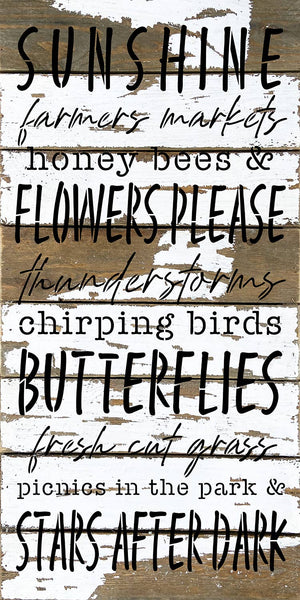 SUNSHINE
farmers markets
honey bees &
FLOWERS PLEASE
thunderstorms
chirping birds
BUTTERFLIES
fresh cut grass
picnics in the park &
STARS AFTER DARK